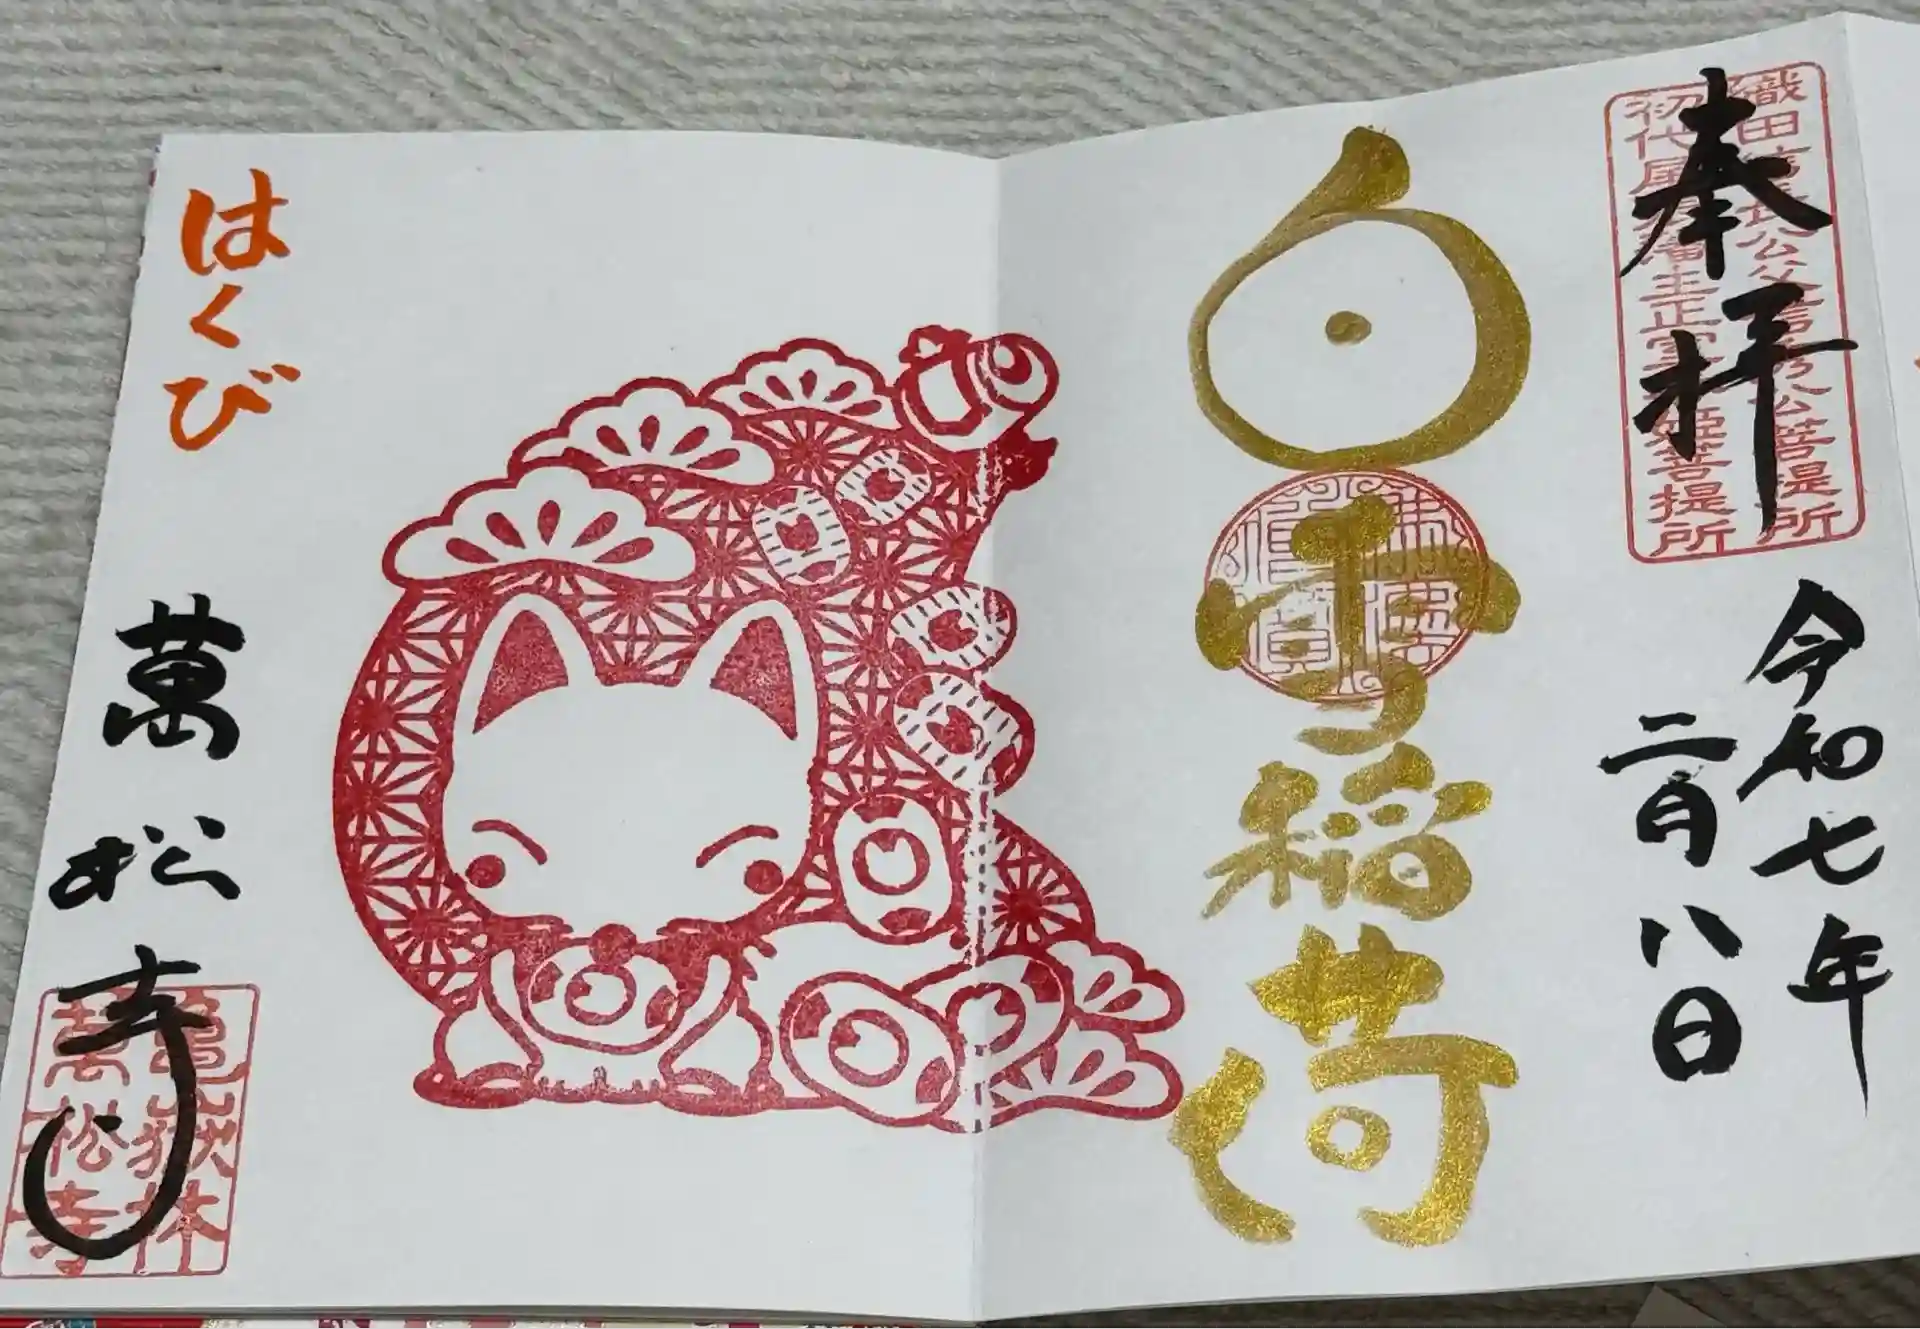 織田信長公父信秀公菩提所
初代尾張藩主正室春姫菩提所
奉拝
令和七年
二月八日
白雪稲荷
はくび
萬松寺
亀嶽林
萬松寺